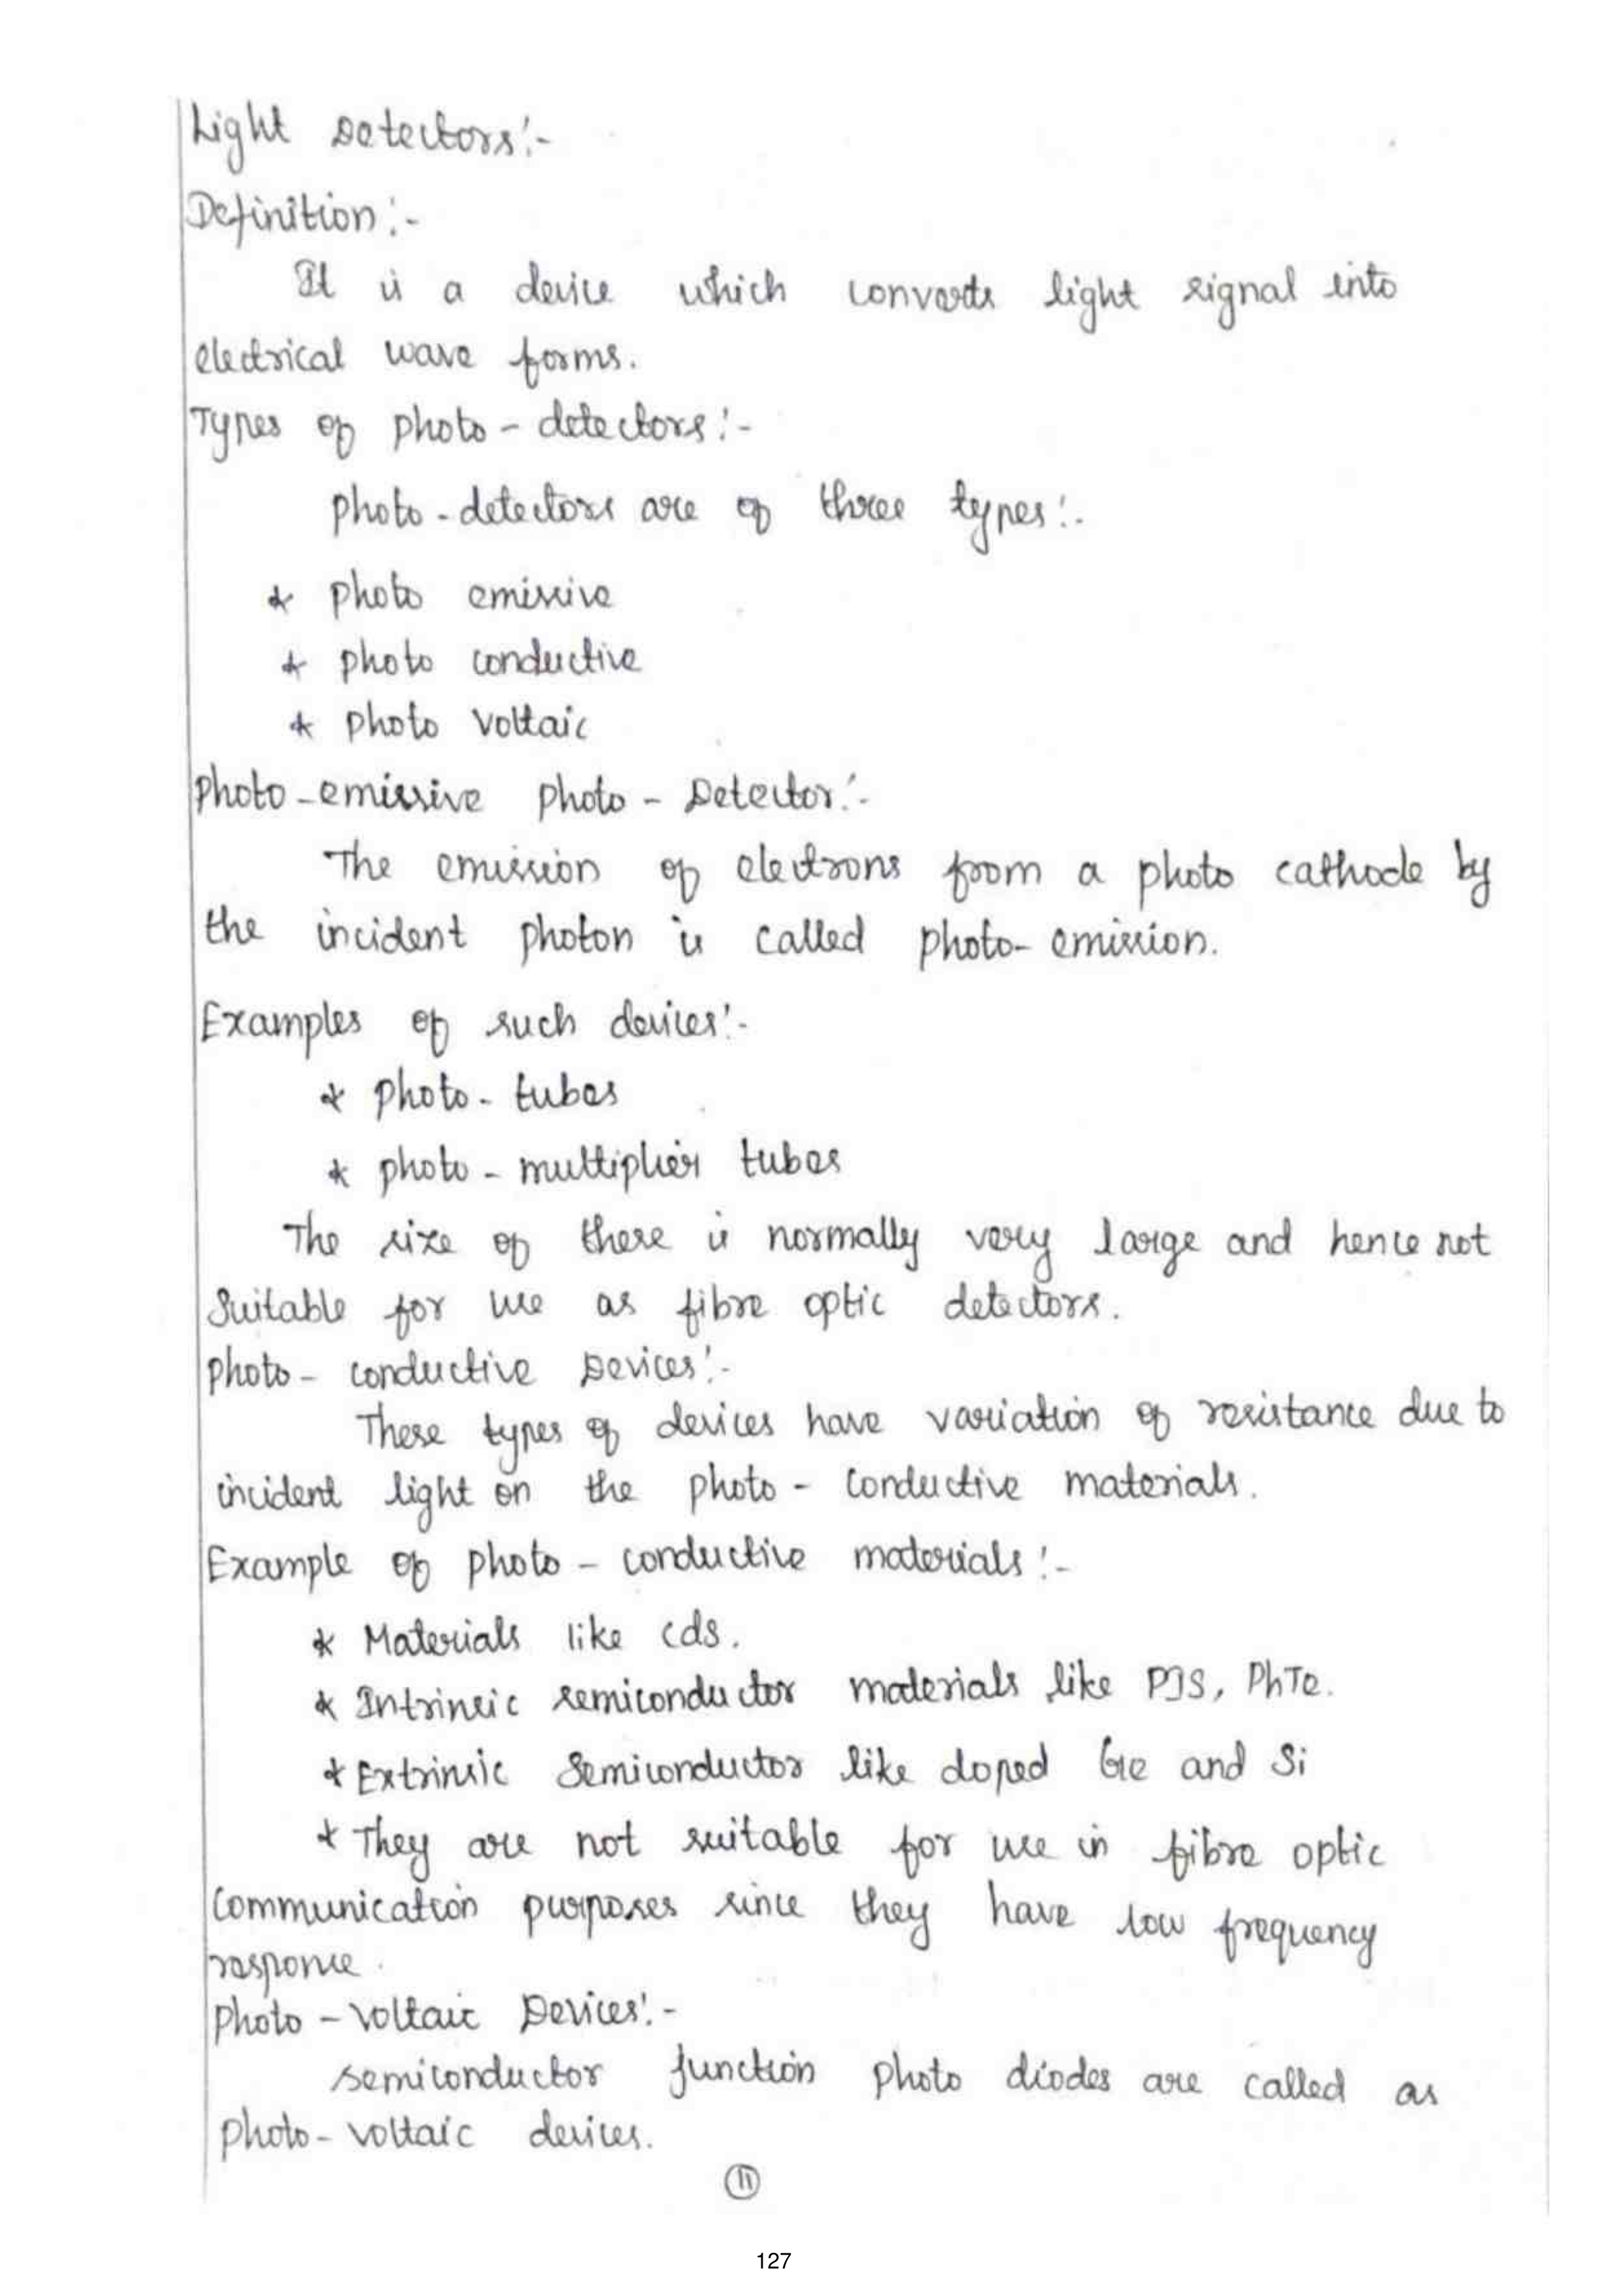 Light Detectors:-
Definition:-
It is a device which converts light signal into
electrical wave forms.
Types of photo-detectors:-
photo-detectors are of three types:-
* photo emissive
* photo conductive
* photo voltaic
Photo-emissive photo-Detector:-
The emission of electrons from a photo cathode by
the incident photon is called photo-emission.
Examples of such devices:-
* photo-tubes
* photo-multiplier tubes
The size of these is normally very large and hence not
Suitable for use as fibre optic detectors.
photo-conductive Devices:-
These types of devices have variation of resistance due to
incident light on the photo-conductive materials.
Example of photo-conductive materials:-
* Materials like cds.
* Intrinsic semiconductor materials like PJS, PhTe.
* Extrinsic Semiconductor like doped Ge and Si
* They are not suitable for use in fibre optic
Communication purposes since they have low frequency
response.
Photo-voltaic Devices:-
semiconductor junction photo diodes are called as
photo-voltaic devices.
11
127